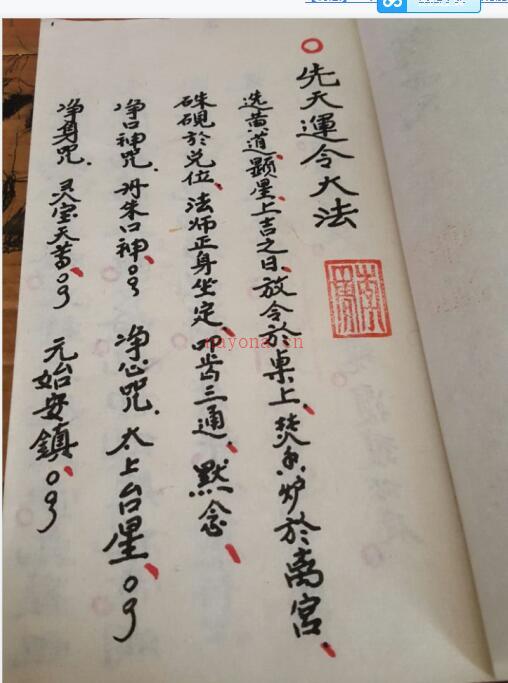 先天運令大法
选黄道、显星、上吉之日、放令於桌上、焚香炉於离宫、
硃砚於兑位、法师正身坐定、叩齿三通、默念、
净口神咒、丹朱口神、净心咒、太上台星、
净身咒、灵宝天尊、元始安鎮、
nayona.cn